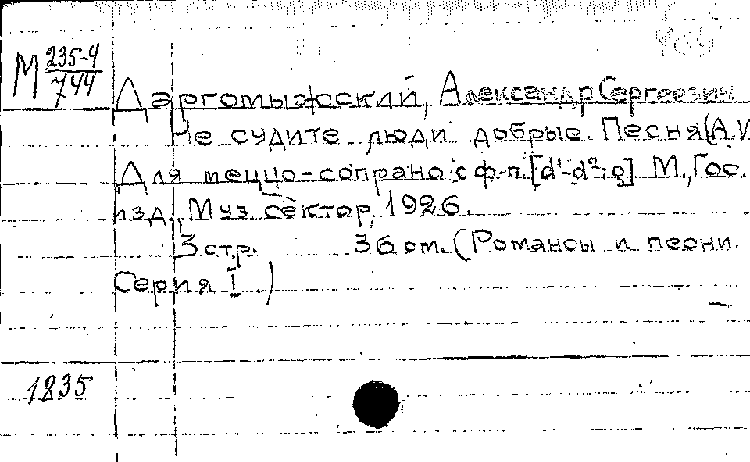 М 235-4
744
Даргомыжский, Александр Сергеевич
Не судите люди добрые. Песня (A.V
Для меццо-сопрано с ф-п. [d¹-d²; g] М., Гос.
изд., Муз. сектор, 1926.
3 стр. 36 см. (Романсы и песни
Серия I.)
1835